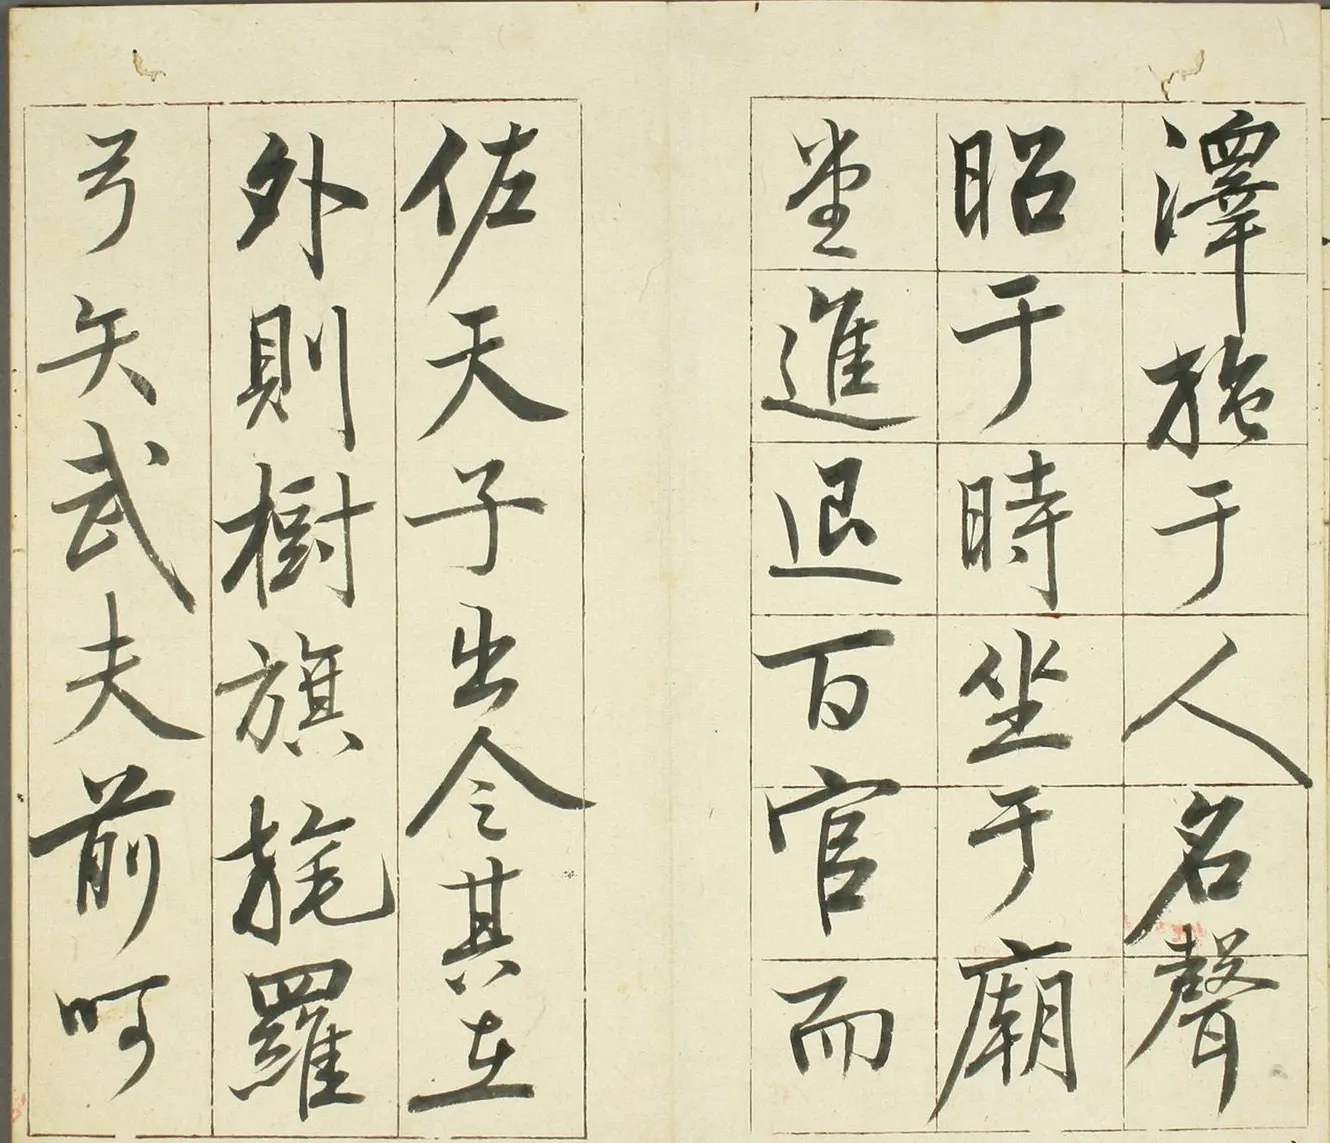 澤施于人名聲
昭于時坐于廟
堂進退百官而
佐天子出令其在
外則樹旗旄羅
弓矢武夫前呵